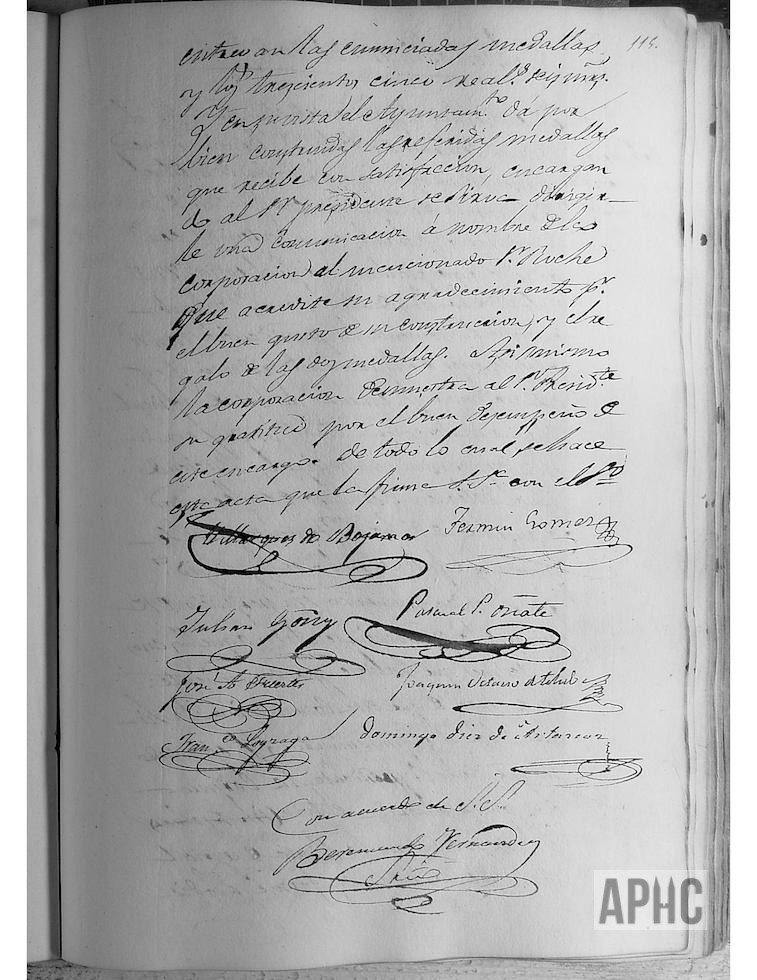 115.
las enunciadas medallas
y los trescientos cinco real.s seis mrs.
Y en su vista el Ayuntam.to da por
bien construidas las referidas medallas
que recibe con satisfaccion, encargan
do al Sr. presidente se sirva dirigir
le una comunicacion á nombre de la
corporacion al mencionado Sr. Roche
que acredite su agradecimiento pr.
el buen gusto de su construccion, y el re
galo de las dos medallas. Asi mismo
la corporacion demuestra al Sr. Presid.te
su gratitud por el buen desempeño de
este encargo. de todo lo cual se hace
esta acta que la firma S.S.a con el
de Bejamar
Fermin Gomez
Julian Goñy
Pascual P. Oñate
José A. Fuertes
Joaquin
Fran.co Loyzaga
Domingo Diez de
Con acuerdo de S.S.
Beremundo Fernandez
Srio
APHC